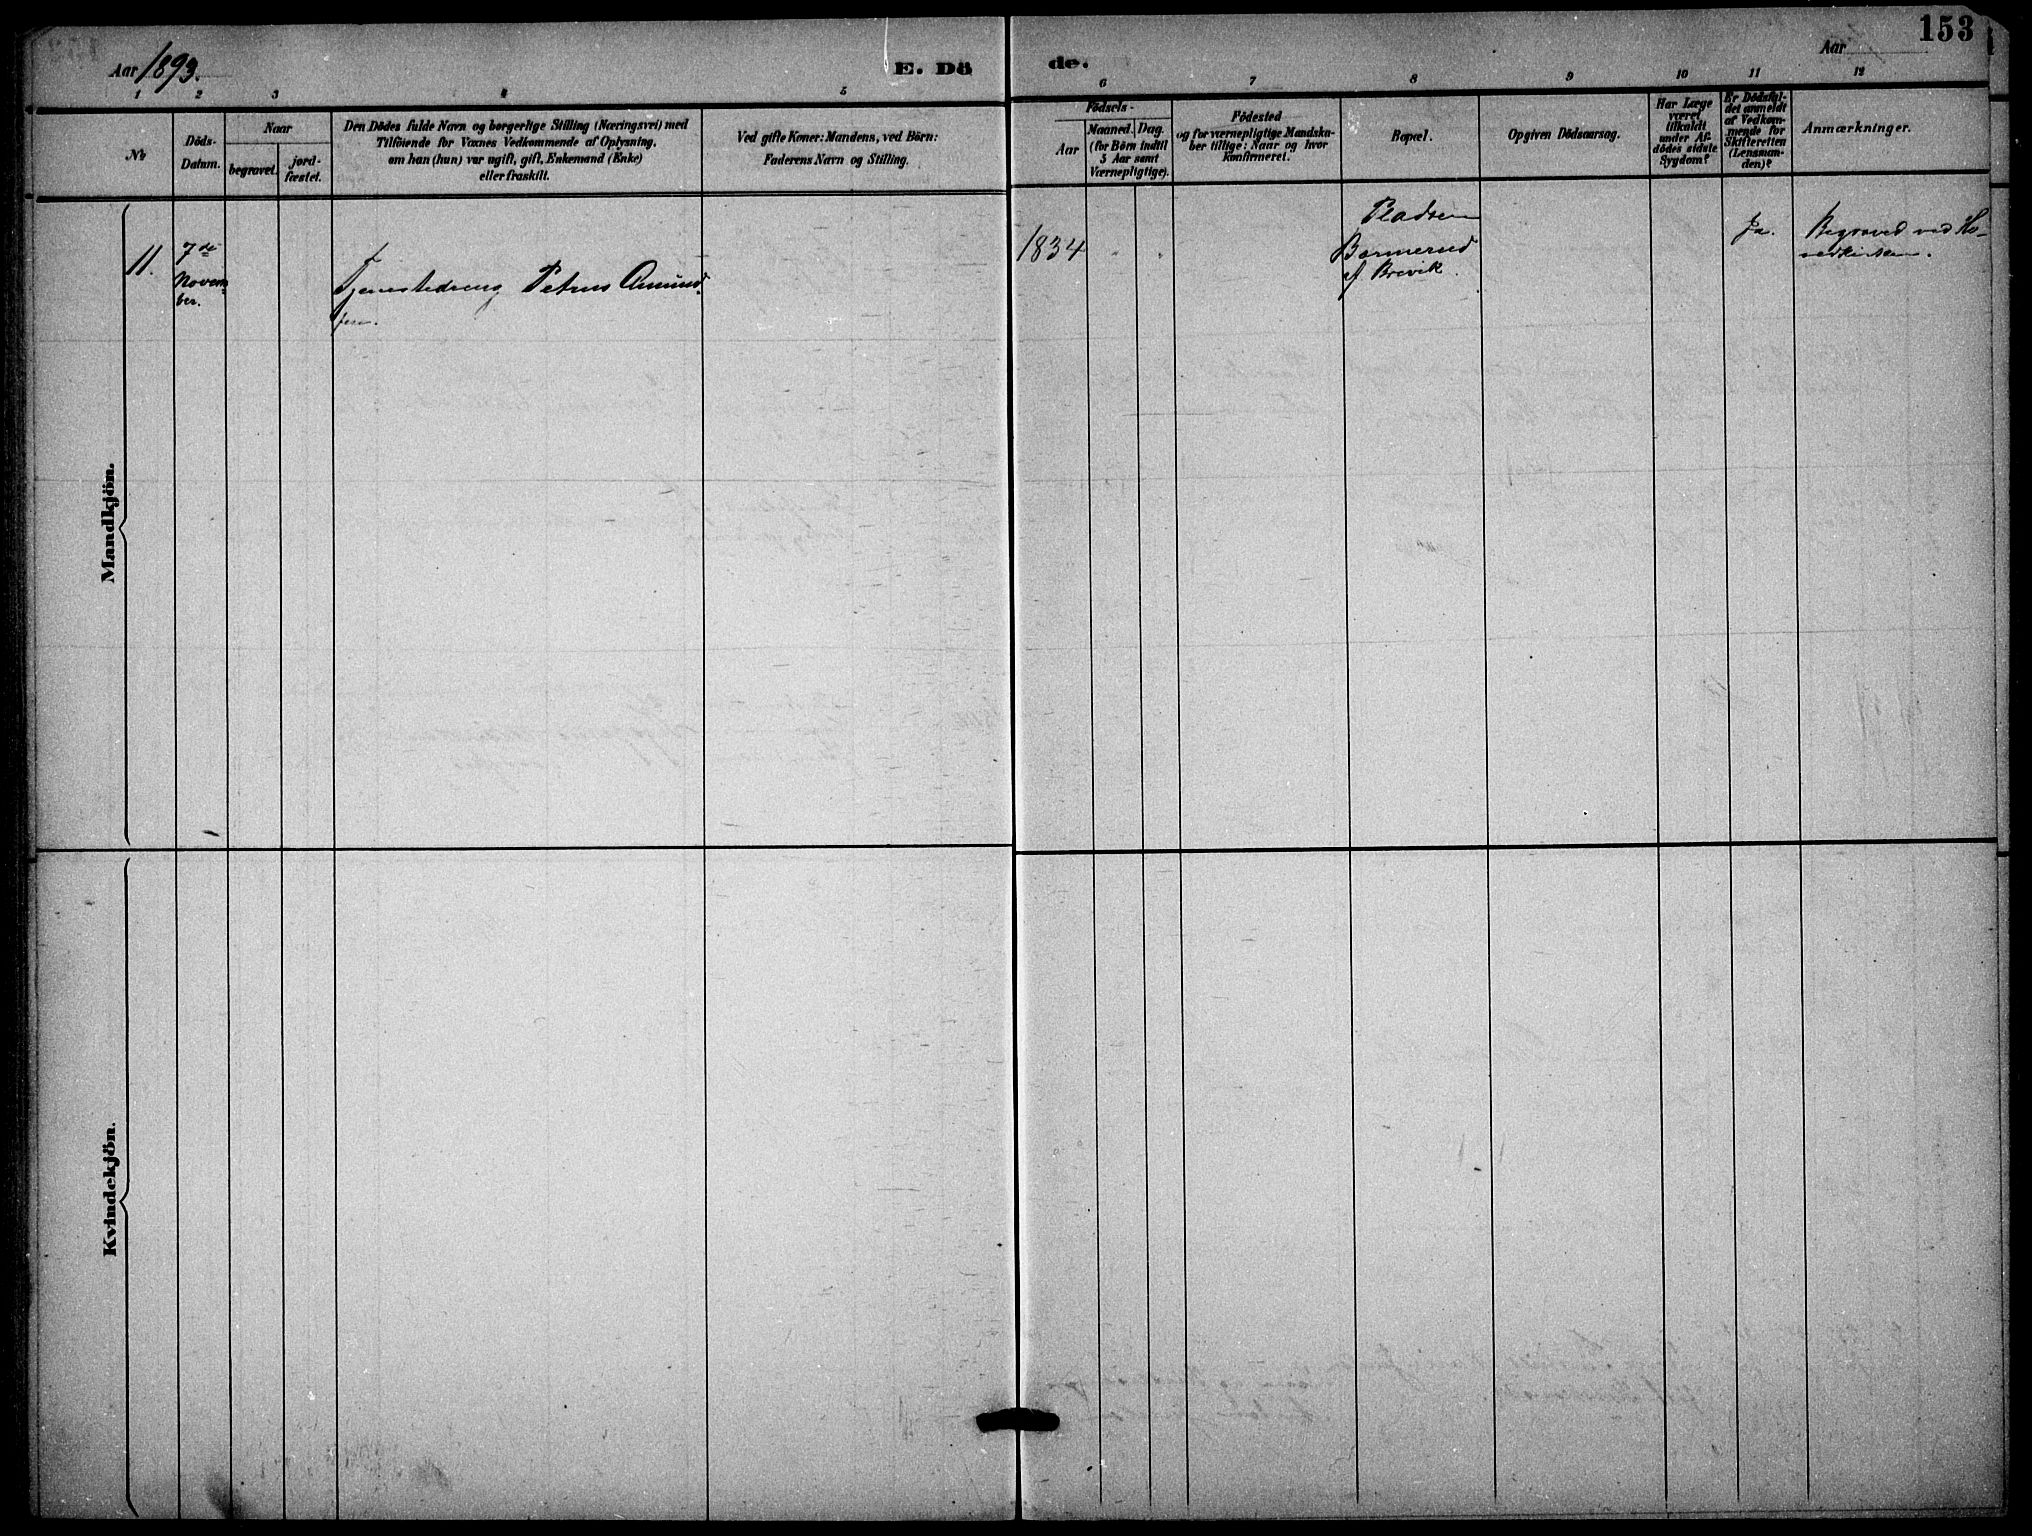 153
Aar 1893.
E. Dö
de.
Aar
1
2
3
4
5
6
7
8
9
10
11
12
No
Döds-
Datum.
Naar
begravet.
jord-
fæstet.
Den Dödes fulde Navn og borgerlige Stilling (Næringsvei) med
Tilföiende for Voxnes Vedkommende af Oplysning,
om han (hun) var ugift, gift, Enkemand (Enke)
eller fraskilt.
Ved gifte Koner: Mandens, ved Börn:
Faderens Navn og Stilling.
Födsels-
Aar
Maaned.
Dag.
(for Börn indtil
5 Aar samt
Værnepligtige).
Födested
og for værnepligtige Mandska-
ber tillige: Naar og hvor
konfirmeret.
Bopæl.
Opgiven Dödsaarsag.
Har Læge
været
tilkaldt
under Af-
dödes sidste
Sygdom?
Er Dödsfal-
det anmeldt
af Vedkom-
mende for
Skifteretten
(Lensman-
den)?
Anmærkninger.
Mandkjön.
11.
7de
Novem-
ber.
Tjenestedreng Petrus Amund-
sen.
1834
"
"
Pladsen
Bommerud
af Brevik.
Ja.
Begraved ved Ho-
vedkirken.
Kvindekjön.